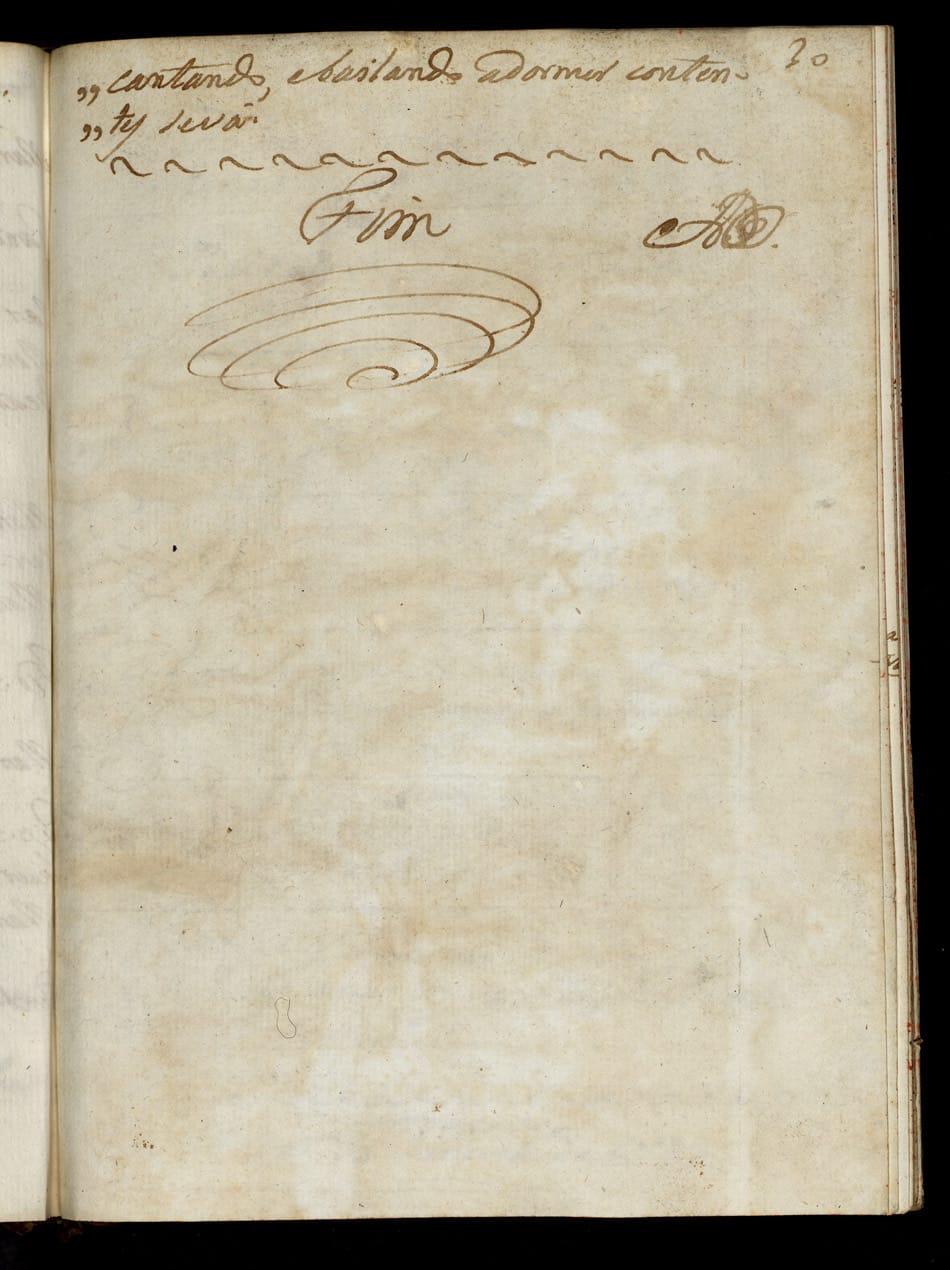 30
„ cantando, e bailando adormir conten-
„ tes se vaõ.
Fim